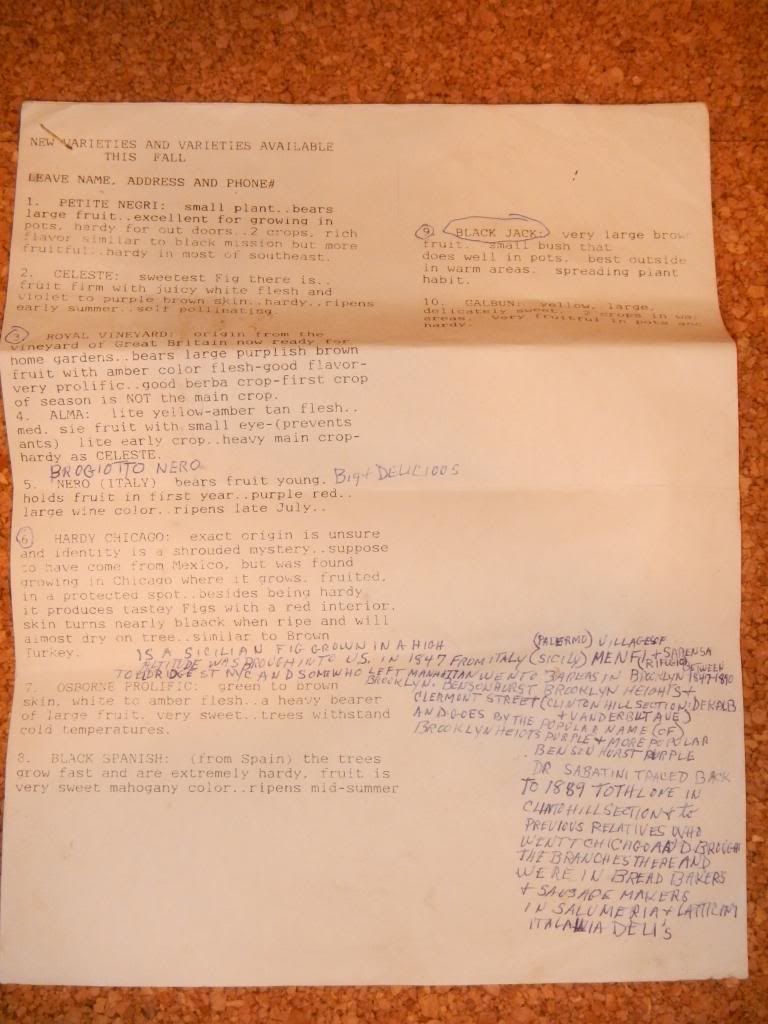 NEW VARIETIES AND VARIETIES AVAILABLE
THIS FALL
LEAVE NAME, ADDRESS AND PHONE#
1. PETITE NEGRI: small plant..bears
large fruit..excellent for growing in
pots, hardy for out doors..2 crops, rich
flavor similar to black mission but more
fruitful..hardy in most of southeast.
2. CELESTE: sweetest Fig there is..
fruit firm with juicy white flesh and
violet to purple brown skin..hardy..ripens
early summer..self pollinating.
3. ROYAL VINEYARD: origin from the
vineyard of Great Britain now ready for
home gardens..bears large purplish brown
fruit with amber color flesh-good flavor-
very prolific..good berba crop-first crop
of season is NOT the main crop.
4. ALMA: lite yellow-amber tan flesh..
med. sie fruit with small eye-(prevents
ants) lite early crop..heavy main crop-
hardy as CELESTE.
BROGIOTTO NERO
5. NERO (ITALY) bears fruit young. Big + DELICIOUS
holds fruit in first year..purple red..
large wine color..ripens late July..
6. HARDY CHICAGO: exact origin is unsure
and identity is a shrouded mystery..suppose
to have come from Mexico, but was found
growing in Chicago where it grows, fruited,
in a protected spot..besides being hardy
it produces tastey Figs with a red interior.
skin turns nearly blaack when ripe and will
almost dry on tree..similar to Brown
Turkey.
IS A SICILIAN FIG GROWN IN A HIGH (PALERMO) VILLAGES OF
ALTITUDE WAS BROUGH INTO U.S. IN 1847 FROM ITALY (SICILY) MENFI + SABENSA
(RIFUGIO) BETWEEN
TO ELDRIDGE ST NYC AND SOM WHO LEFT MANHATTAN WEN TO AREAS IN BROOKLYN 1847-1890
BROOKLYN. BENSONHURST BROOKLYN HEIGHTS +
CLERMONT STREET (CLINTON HILL SECTION: DEKALB
+ VANDERBILT AVE)
AND GOES BY THE POPULAR NAME (OF)
BROOKLYN HEIOTS PURPLE + MORE POPULAR
BENSON HURST PURPLE
DR SABATINI TRACED BACK
TO 1889 TO THLONE IN
CLINTO HILL SECTION + to
PREVIOUS RELATIVES WHO
WENT T CHICHGO AA D BROUGH
THE BRANCHES THERE AND
WERE IN BREAD BAKERS
+ SAUSAGE MAKERS
IN SALUMERIA + LATTICINI
ITALAWIA DELI's
7. OSBORNE PROLIFIC: green to brown
skin, white to amber flesh..a heavy bearer
of large fruit, very sweet..trees withstand
cold temperatures.
8. BLACK SPANISH: (from Spain) the trees
grow fast and are extremely hardy, fruit is
very sweet mahogany color..ripens mid-summer
9. BLACK JACK: very large brown
fruit. small bush that
does well in pots. best outside
in warm areas. spreading plant
habit.
10. GALBUN: yellow, large,
delicately sweet. 2 crops in wa
areas. very fruitful in pots and
hardy.